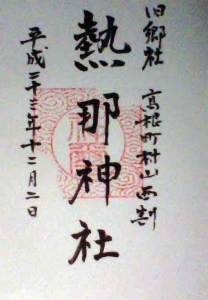 旧郷社 高根町村山西割
熱那神社
平成二十三年十二月二日